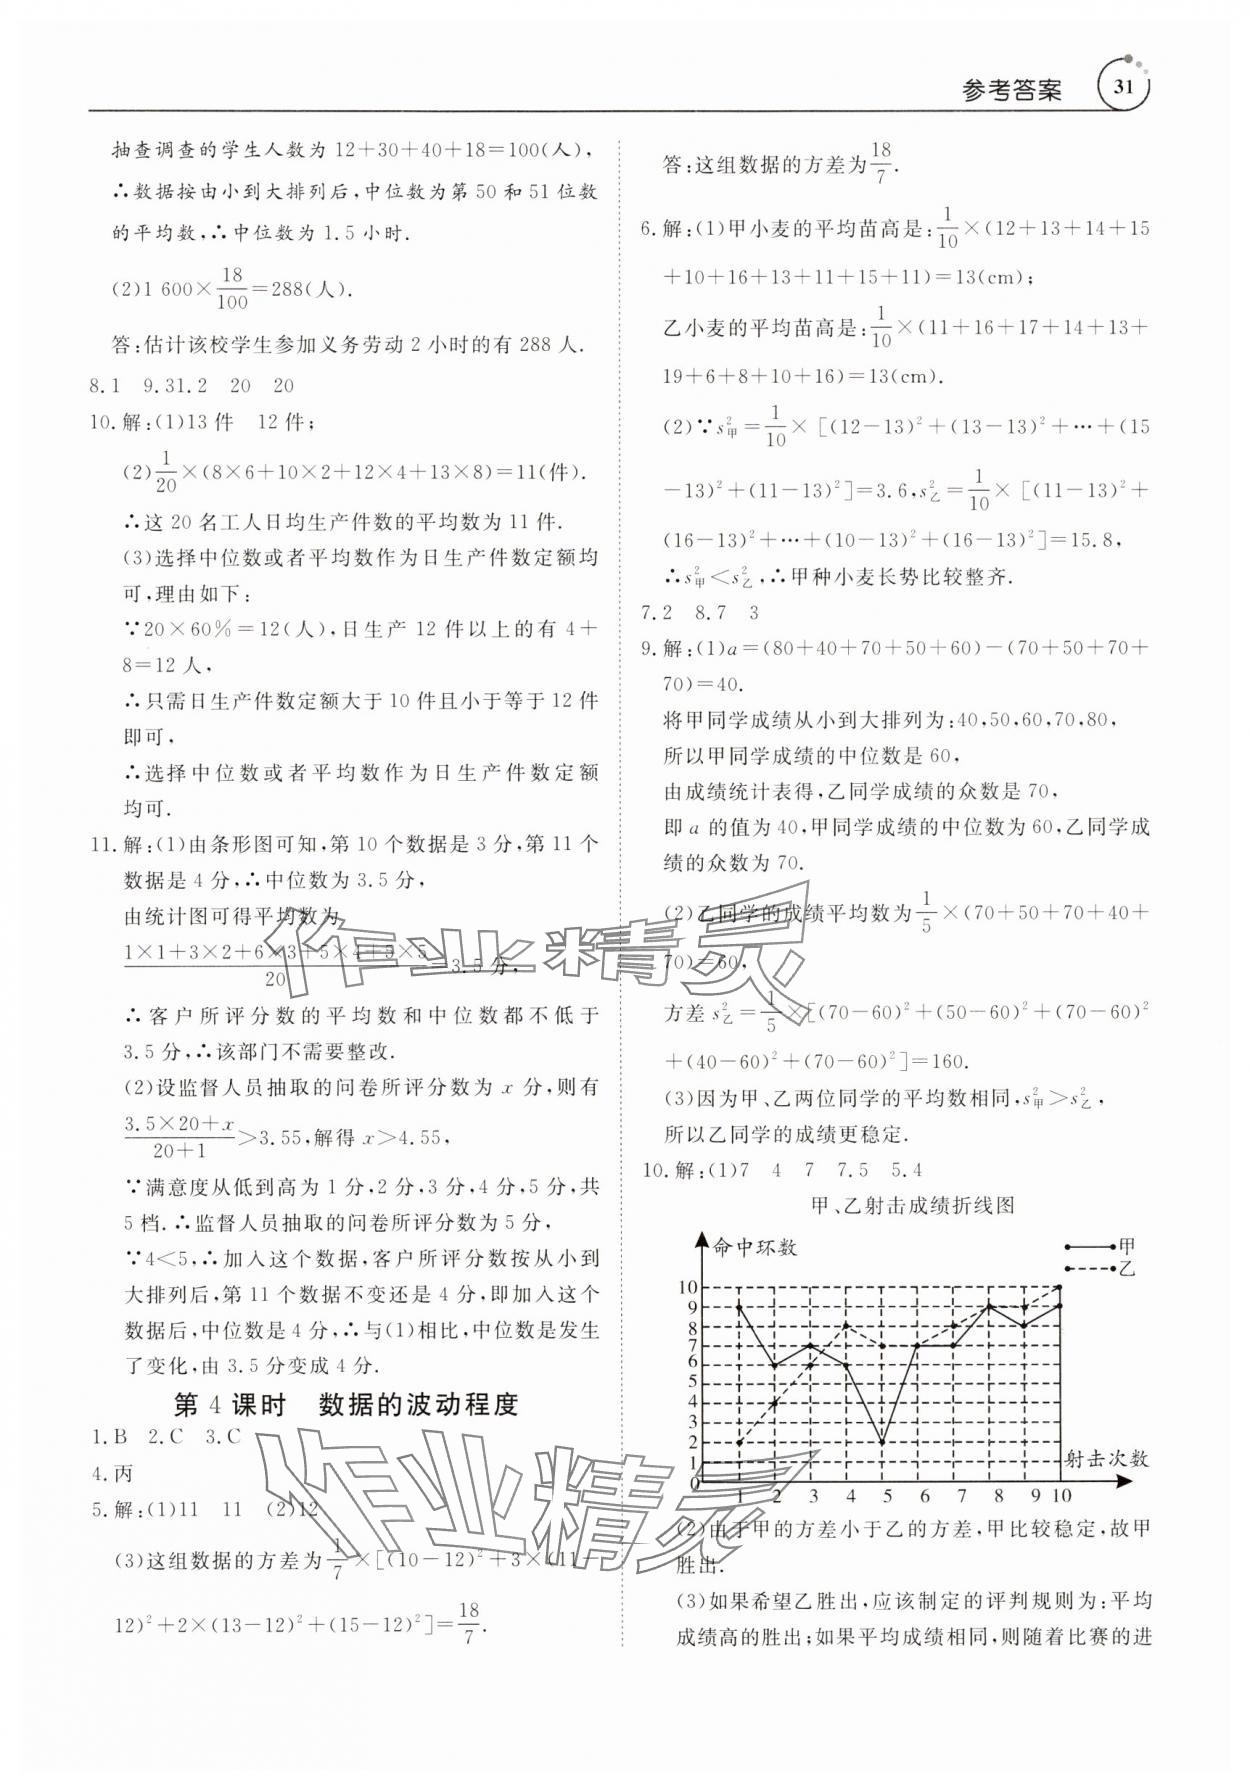 参考答案 31
抽查调查的学生人数为 12+30+40+18=100(人),
∴数据按由小到大排列后,中位数为第 50 和 51 位数
的平均数,∴中位数为 1.5 小时.
(2)1 600×18/100=288(人).
答:估计该校学生参加义务劳动 2 小时的有 288 人.
8.1 9.31.2 20 20
10.解:(1)13 件 12 件;
(2)1/20×(8×6+10×2+12×4+13×8)=11(件).
∴这 20 名工人日均生产件数的平均数为 11 件.
(3)选择中位数或者平均数作为日生产件数定额均
可,理由如下:
∵20×60%=12(人),日生产 12 件以上的有 4+
8=12 人,
∴只需日生产件数定额大于 10 件且小于等于 12 件
即可,
∴选择中位数或者平均数作为日生产件数定额
均可.
11.解:(1)由条形图可知,第 10 个数据是 3 分,第 11 个
数据是 4 分,∴中位数为 3.5 分,
由统计图可得平均数为
(1×1+3×2+6×3+5×4+5×5)/20=3.5 分,
∴客户所评分数的平均数和中位数都不低于
3.5 分,∴该部门不需要整改.
(2)设监督人员抽取的问卷所评分数为 x 分,则有
(3.5×20+x)/(20+1)>3.55,解得 x>4.55,
∵满意度从低到高为 1 分,2 分,3 分,4 分,5 分,共
5 档.∴监督人员抽取的问卷所评分数为 5 分,
∵4<5,∴加入这个数据,客户所评分数按从小到
大排列后,第 11 个数据不变还是 4 分,即加入这个
数据后,中位数是 4 分,∴与(1)相比,中位数是发生
了变化,由 3.5 分变成 4 分.
第 4 课时 数据的波动程度
1.B 2.C 3.C
4.丙
5.解:(1)11 11 (2)12
(3)这组数据的方差为1/7×[(10-12)²+3×(11-
12)²+2×(13-12)²+(15-12)²]=18/7.
答:这组数据的方差为18/7.
6.解:(1)甲小麦的平均苗高是:1/10×(12+13+14+15
+10+16+13+11+15+11)=13(cm);
乙小麦的平均苗高是:1/10×(11+16+17+14+13+
19+6+8+10+16)=13(cm).
(2)∵s²甲=1/10×[(12-13)²+(13-13)²+…+(15
-13)²+(11-13)²]=3.6,s²乙=1/10×[(11-13)²+
(16-13)²+…+(10-13)²+(16-13)²]=15.8,
∴s²甲<s²乙,∴甲种小麦长势比较整齐.
7.2 8.7 3
9.解:(1)a=(80+40+70+50+60)-(70+50+70+
70)=40.
将甲同学成绩从小到大排列为:40,50,60,70,80,
所以甲同学成绩的中位数是 60,
由成绩统计表得,乙同学成绩的众数是 70,
即 a 的值为 40,甲同学成绩的中位数为 60,乙同学成
绩的众数为 70.
(2)乙同学的成绩平均数为1/5×(70+50+70+40+
70)=60,
方差 s²乙=1/5×[(70-60)²+(50-60)²+(70-60)²
+(40-60)²+(70-60)²]=160.
(3)因为甲、乙两位同学的平均数相同,s²甲>s²乙,
所以乙同学的成绩更稳定.
10.解:(1)7 4 7 7.5 5.4
甲、乙射击成绩折线图
命中环数
甲
乙
10
9
8
7
6
5
4
3
2
1
0
射击次数
1 2 3 4 5 6 7 8 9 10
(2)由于甲的方差小于乙的方差,甲比较稳定,故甲
胜出.
(3)如果希望乙胜出,应该制定的评判规则为:平均
成绩高的胜出;如果平均成绩相同,则随着比赛的进
作业精灵
作业精灵